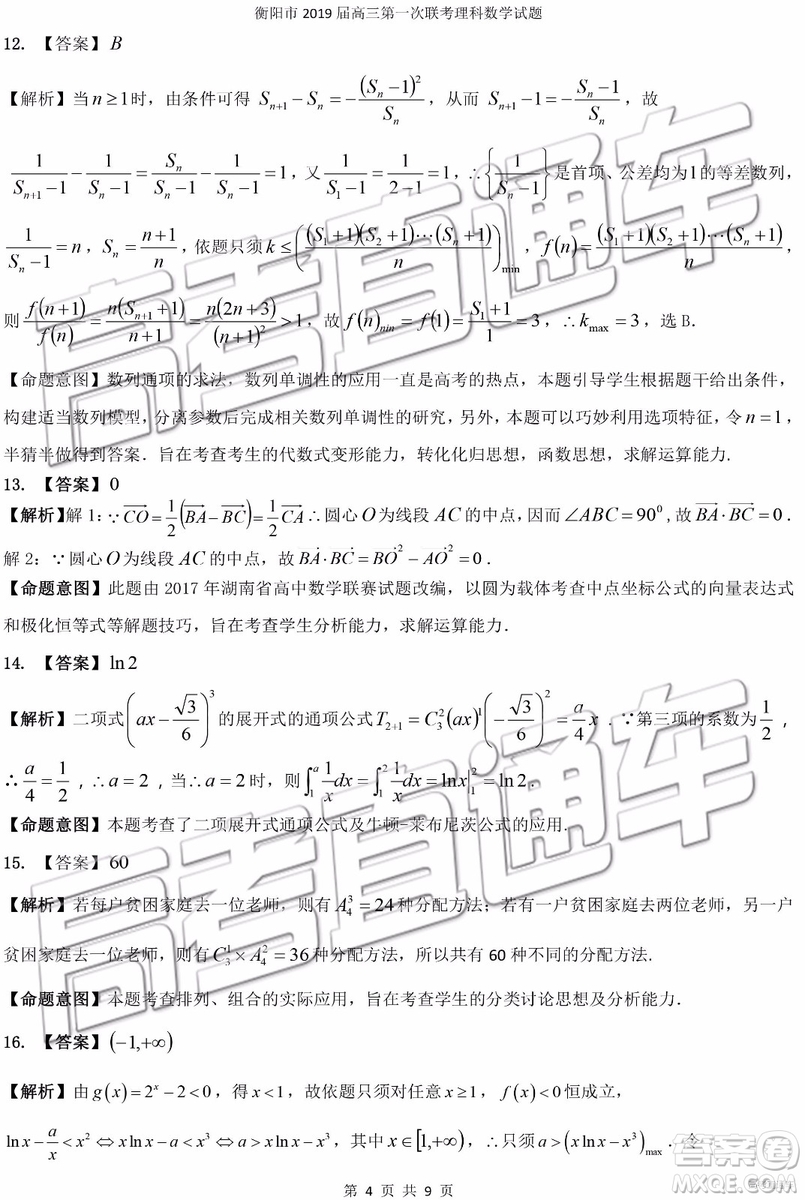 衡阳市 2019 届高三第一次联考理科数学试题
12. 【答案】B
【解析】当 n≥1时，由条件可得 S_{n+1}-S_n=-\frac{(S_n-1)^2}{S_n}，从而 S_{n+1}-1=-\frac{S_n-1}{S_n}，故
\frac{1}{S_{n+1}-1}-\frac{1}{S_n-1}=\frac{S_n}{S_n-1}-\frac{1}{S_n-1}=1，又\frac{1}{S_1-1}=\frac{1}{2-1}=1，∴{\frac{1}{S_n-1}}是首项、公差均为1的等差数列，
\frac{1}{S_n-1}=n，S_n=\frac{n+1}{n}，依题只须 k≤(\frac{(S_1+1)(S_2+1)⋯(S_n+1)}{n})_{min}，f(n)=\frac{(S_1+1)(S_2+1)⋯(S_n+1)}{n}，
则\frac{f(n+1)}{f(n)}=\frac{n(S_{n+1}+1)}{n+1}=\frac{n(2n+3)}{(n+1)^2}>1，故 f(n)_{nin}=f(1)=\frac{S_1+1}{1}=3，∴k_{max}=3，选 B．
【命题意图】数列通项的求法，数列单调性的应用一直是高考的热点，本题引导学生根据题干给出条件，
构建适当数列模型，分离参数后完成相关数列单调性的研究，另外，本题可以巧妙利用选项特征，令 n=1，
半猜半做得到答案．旨在考查考生的代数式变形能力，转化化归思想，函数思想，求解运算能力．
13. 【答案】0
【解析】解 1：∵\vec{CO}=\frac{1}{2}(\vec{BA}-\vec{BC})=\frac{1}{2}\vec{CA}∴圆心O为线段 AC 的中点，因而∠ABC=90^0,故\vec{BA}·\vec{BC}=0．
解 2：∵圆心O为线段 AC 的中点，故 BA·BC=BO^2-AO^2=0．
【命题意图】此题由 2017 年湖南省高中数学联赛试题改编，以圆为载体考查中点坐标公式的向量表达式
和极化恒等式等解题技巧，旨在考查学生分析能力，求解运算能力．
14. 【答案】ln2
【解析】二项式(ax-\frac{\sqrt{3}}{6})^3的展开式的通项公式 T_{2+1}=C_3^2(ax)^1(-\frac{\sqrt{3}}{6})^2=\frac{a}{4}x．∵第三项的系数为\frac{1}{2}，
∴\frac{a}{4}=\frac{1}{2}，∴a=2，当∴a=2时，则∫_1^a\frac{1}{x}dx=∫_1^2\frac{1}{x}dx=lnx|_1^2=ln2．
【命题意图】本题考查了二项展开式通项公式及牛顿=莱布尼茨公式的应用．
15. 【答案】60
【解析】若每户贫困家庭去一位老师，则有 A_4^3=24种分配方法；若有一户贫困家庭去两位老师，另一户
贫困家庭去一位老师，则有 C_3^1×A_4^2=36种分配方法，所以共有 60 种不同的分配方法．
【命题意图】本题考查排列、组合的实际应用，旨在考查学生的分类讨论思想及分析能力．
16. 【答案】(-1,+∞)
【解析】由 g(x)=2^x-2<0，得 x<1，故依题只须对任意 x≥1，f(x)<0恒成立，
lnx-\frac{a}{x}<x^2⇔xlnx-a<x^3⇔a>xlnx-x^3，其中 x∈[1,+∞)，∴只须 a>(xlnx-x^3)_{max}．令
第 4 页 共 9 页
高考直通车
高考直通车